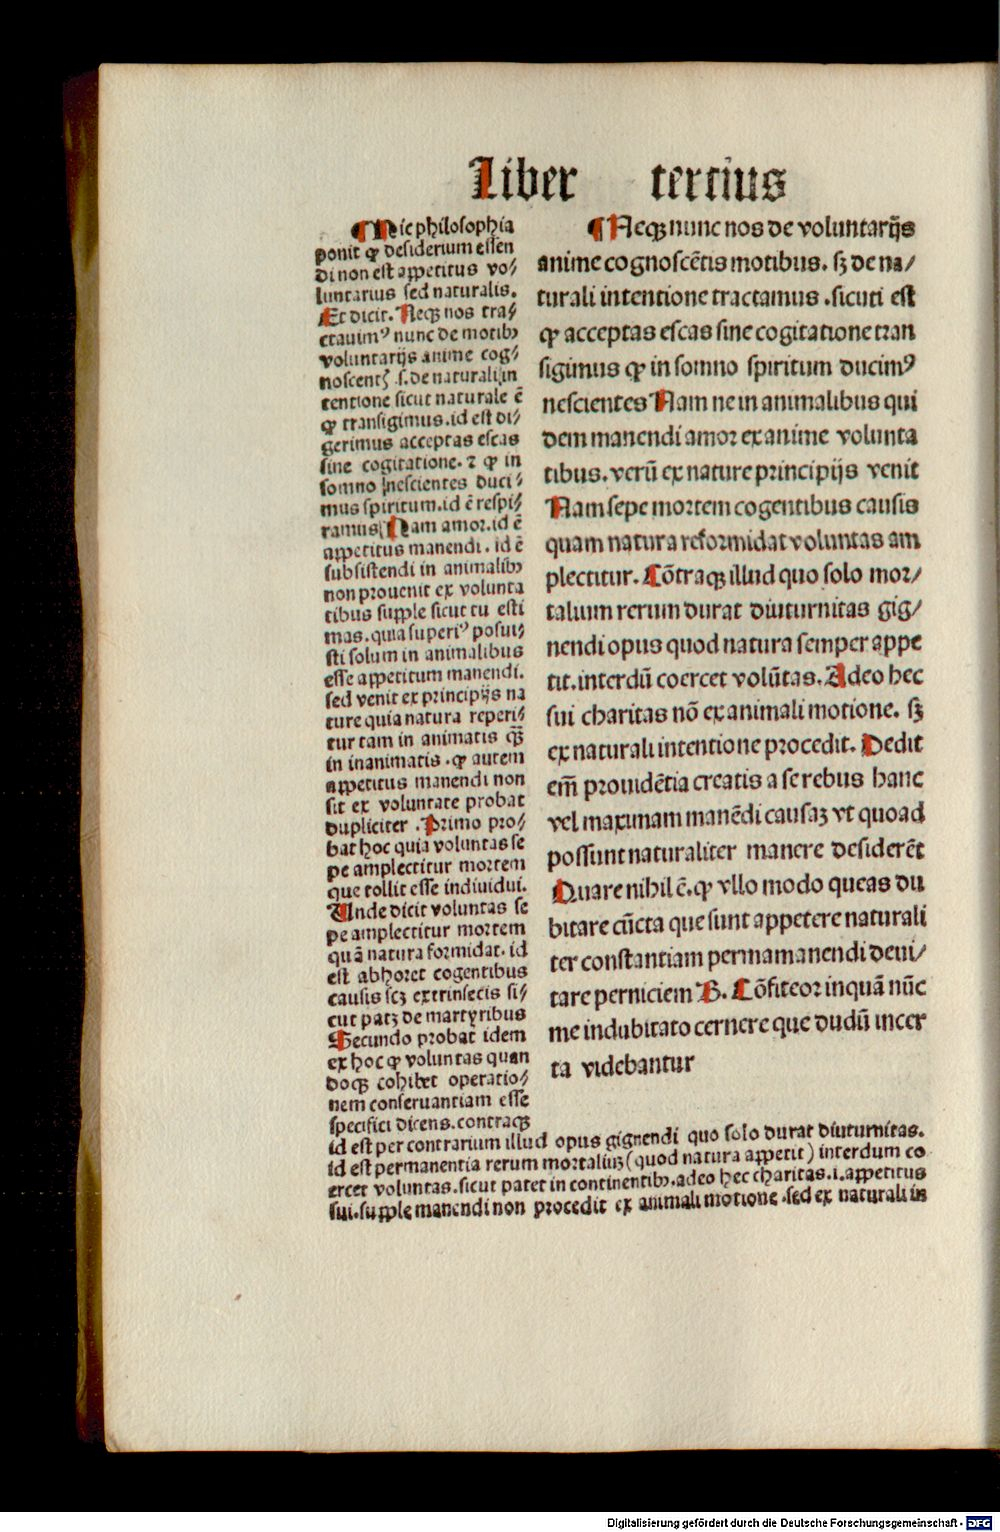 Liber tertius
¶ Hic philosophia
ponit ꝙ desiderium essen
di non est appetitus vo/
luntarius sed naturalis.
Et dicit. Neqꝫ nos tra/
ctauimꝰ nunc de motibꝰ
voluntarijs anime cog/
noscentꝭ .s. de naturali in
tentione sicut naturale ē
ꝙ transigimus. id est di/
gerimus acceptas escas
sine cogitatione. ⁊ ꝙ in
somno nescientes duci/
mus spiritum. id ē respi/
ramus Nam amor. id ē
appetitus manendi. id ē
subsistendi in animalibꝰ
non prouenit ex volunta
tibus supple sicut tu esti
mas. quia superiꝰ posui/
sti solum in animalibus
esse appetitum manendi.
sed venit ex principijs na
ture quia natura reperi/
tur tam in animatis qꝫ̄
in inanimatis. ꝙ autem
appetitus manendi non
sit ex voluntate probat
dupliciter. Primo pro/
bat hoc quia voluntas se
pe amplectitur mortem
que tollit esse indiuidui.
Unde dicit voluntas se
pe amplectitur mortem
quā natura formidat. id
est abhoret cogentibus
causis scꝫ extrinsecis si/
cut patꝫ de martyribus
Secundo probat idem
ex hoc ꝙ voluntas quan
doqꝫ cohibet operatio/
nem conseruantiam esse
specifici dicens. contraqꝫ
id est per contrarium illud opus gignendi quo solo durat diuturnitas.
id est permanentia rerum mortaliuꝫ (quod natura appetit) interdum co
ercet voluntas. sicut patet in continentibꝰ. adeo hec charitas. i. appetitus
sui. supple manendi non procedit ex animali motione. sed ex naturali in
¶ Neqꝫ nunc nos de voluntarijs
anime cognoscētis motibus. sꝫ de na/
turali intentione tractamus. sicuti est
ꝙ acceptas escas sine cogitatione tran
sigimus ꝙ in somno spiritum ducimꝰ
nescientes Nam ne in animalibus qui
dem manendi amor ex anime volunta
tibus. verū ex nature principijs venit
Nam sepe mortem cogentibus causis
quam natura reformidat voluntas am
plectitur. Cōtraqꝫ illud quo solo mor/
talium rerum durat diuturnitas gig/
nendi opus quod natura semper appe
tit. interdū coercet volūtas. Adeo hec
sui charitas nō ex animali motione. sꝫ
ex naturali intentione procedit. Dedit
em̄ prouidētia creatis a se rebus hanc
vel maximam manēdi causaꝫ vt quoad
possunt naturaliter manere desiderēt
Quare nihil ē. ꝙ vllo modo queas du
bitare cūcta que sunt appetere naturali
ter constantiam permamanendi deui/
tare perniciem B. Cōfiteor inquā nūc
me indubitato cernere que dudū incer
ta videbantur
Digitalisierung gefördert durch die Deutsche Forschungsgemeinschaft - DFG